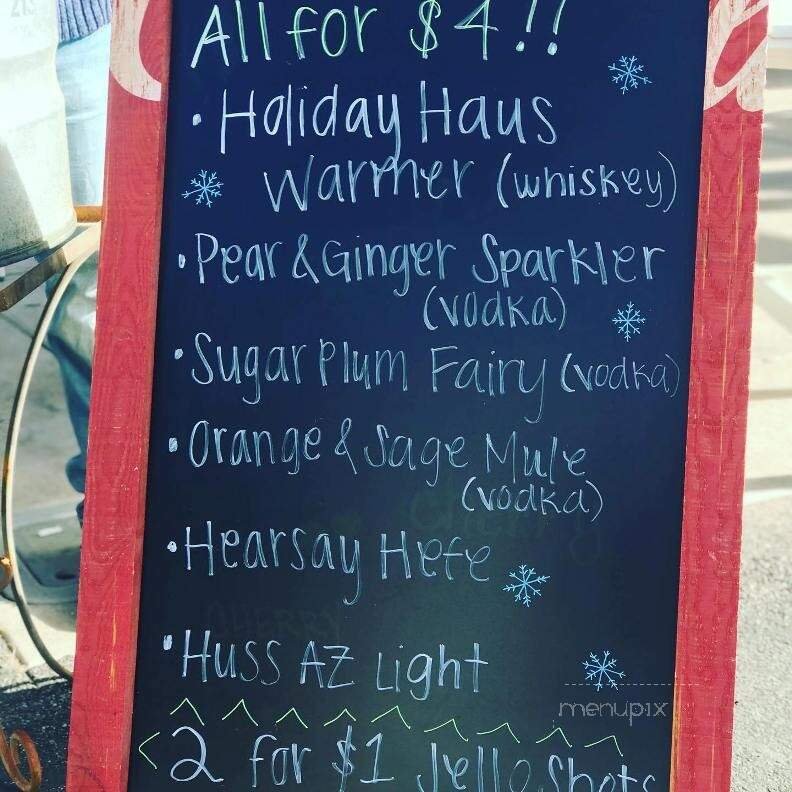 All for $4!!
• Holiday Haus
Warmer (whiskey)
• Pear & Ginger Sparkler
(vodka)
• Sugar Plum Fairy (vodka)
• Orange & Sage Mule
(vodka)
• Hearsay Hefe
• Huss AZ Light
menupix
2 for $1 Jello Shots